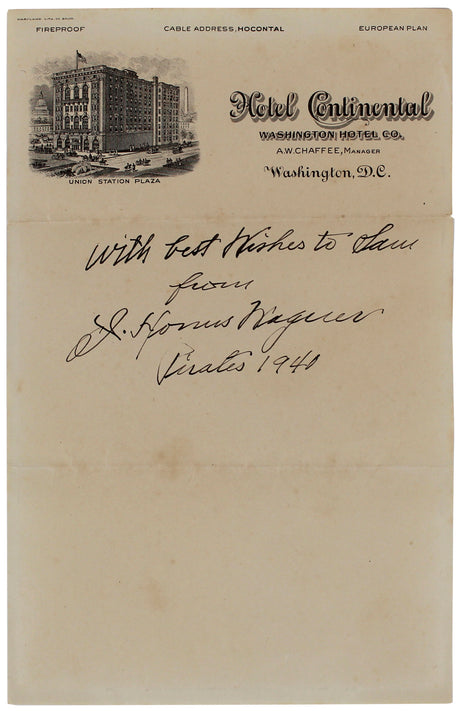 FIREPROOF
CABLE ADDRESS, HOCONTAL
EUROPEAN PLAN
Hotel Continental
WASHINGTON HOTEL CO.
A.W. CHAFFEE, MANAGER
Washington, D.C.
UNION STATION PLAZA
With best Wishes to Sam
from
J. Honus Wagner
Pirates 1940